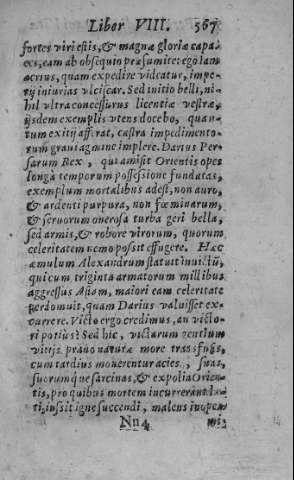 Liber VIII. 567
fortes viri estis, & magnæ gloriæ capa-
ces, eam ab obsequio præsumite: ego iam
acrius, quam expedire videatur, impe-
rij iniurias vlciscar. Sed initio belli, ni-
hil vltra concessurus licentiæ vestræ,
ijsdem exemplis vtens docebo, quan-
tum exitij afferat, castra impedimento-
rum graui agmine implere. Darius Per-
sarum Rex, qui amisit Orientis opes
longa temporum possessione fundatas,
exemplum mortalibus adest, non auro,
& ardenti purpura, non fœminarum,
& seruorum onerosa turba geri bella,
sed armis, & robore virorum, quorum
celeritatem nemo possit effugere. Hæc
æmulum Alexandrum statuit inuictū,
qui cum triginta armatorum millibus
aggressus Asiam, maiori eam celeritate
perdomuit, quam Darius valuisset ex-
currere. Victo ergo credimus, an victo-
ri potius? Sed hic, victarum gentium
vitijs prauo naturæ more transfusis,
cum tardius mouerentur acies, suas,
suorumque sarcinas, & expolia Orien-
tis, pro quibus mortem incurrerant
ti, iussit igne succendi, malens inopem
Nn 4